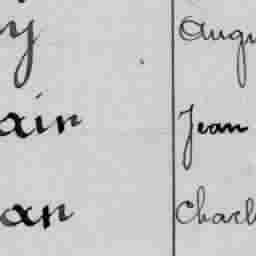 y Augu
air Jean
an Charl